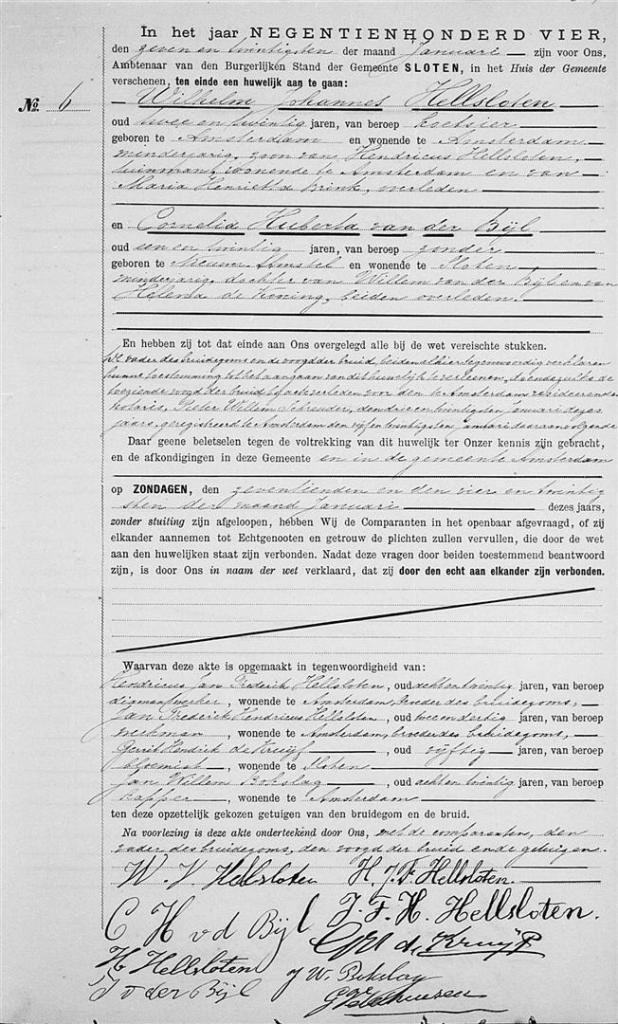 In het jaar NEGENTIENHONDERD VIER,
den zeven en twintigsten der maand Januari zijn voor Ons,
Ambtenaar van den Burgerlijken Stand der Gemeente SLOTEN, in het Huis der Gemeente
verschenen, ten einde een huwelijk aan te gaan:
No. 6
Wilhelm Johannes Hellsloten
oud twee en twintig jaren, van beroep koetsier
geboren te Amsterdam en wonende te Amsterdam
minderjarig, zoon van Hendricus Hellsloten,
tuinman, wonende te Amsterdam en van
Maria Henrietta Brink, overleden
en Cornelia Huberta van der Bijl
oud een en twintig jaren, van beroep zonder
geboren te Nieuwer Amstel en wonende te Sloten,
minderjarig, dochter van Willem van der Bijl en van
Helena de Koning, beiden overleden.
En hebben zij tot dit einde aan Ons overgelegd alle bij de wet vereischte stukken.
De vader des bruidegoms en de voogd der bruid, beiden alhier tegenwoordig verklaren
hunne toestemming tot het aangaan van dit huwelijk te verleenen, de
toeziende voogd der bruid bij acte verleden voor den te Amsterdam resideerenden
notaris, Pieter Willem Schreuder, den drie en twintigsten Januari dezes
jaars, geregistreerd te Amsterdam den vijf en twintigsten Januari daaraanvolgende
Daar geene beletselen tegen de voltrekking van dit huwelijk ter Onzer kennis zijn gebracht,
en de afkondigingen in deze Gemeente en in de gemeente Amsterdam
op ZONDAGEN, den zeventienden en den vier en twintig
sten der maand Januari dezes jaars,
zonder stuiting zijn afgeloopen, hebben Wij de Comparanten in het openbaar afgevraagd, of zij
elkander aannemen tot Echtgenooten en getrouw de plichten zullen vervullen, die door de wet
aan den huwelijken staat zijn verbonden. Nadat deze vragen door beiden toestemmend beantwoord
zijn, is door Ons in naam der wet verklaard, dat zij door den echt aan elkander zijn verbonden.
Waarvan deze akte is opgemaakt in tegenwoordigheid van:
Hendricus Jan Frederik Hellsloten, oud acht en twintig jaren, van beroep
diamantwerker, wonende te Amsterdam, broeder des bruidegoms,
Jan Frederik Hendricus Hellsloten, oud twee en dertig jaren, van beroep
werkman, wonende te Amsterdam, broeder des bruidegoms,
Gerrit Hendrik de Kruijf, oud vijftig jaren, van beroep
bloemist, wonende te Sloten
Jan Willem Bokslag, oud acht en twintig jaren, van beroep
kapper, wonende te Amsterdam
ten deze opzettelijk gekozen getuigen van den bruidegom en de bruid.
Na voorlezing is deze akte onderteekend door Ons, met de comparanten, den
vader des bruidegoms, den voogd der bruid en de getuigen.
W. J. Hellsloten H. J. F. Hellsloten.
C H v d Bijl J. F. H. Hellsloten.
GH de Kruijf
H Hellsloten J W. Bokslag
J v der Bijl